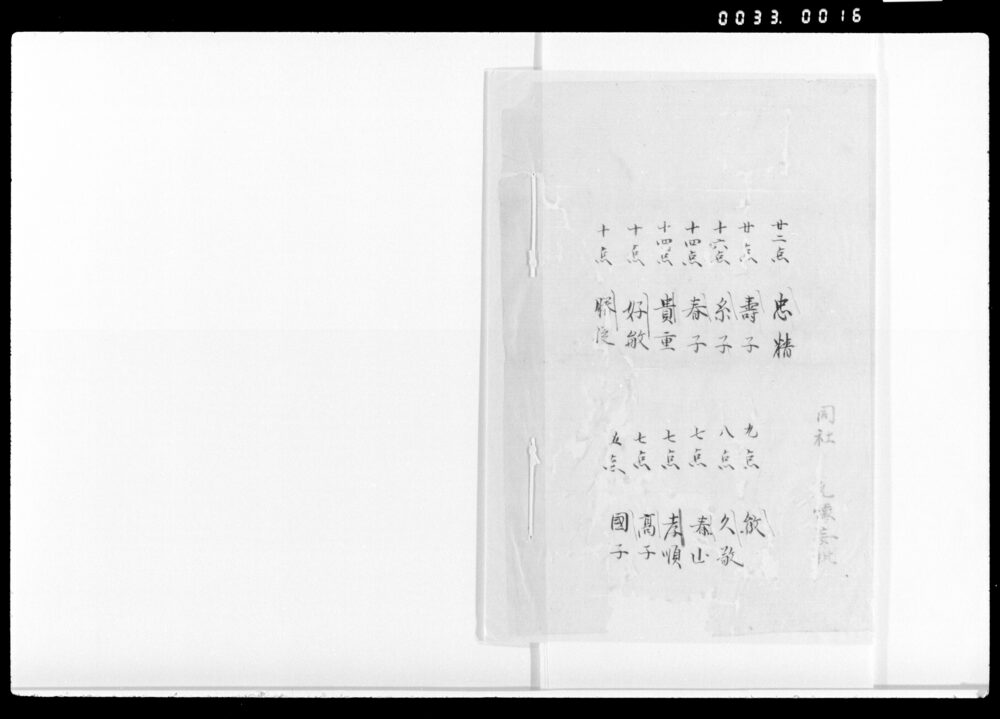 0033. 0016
同社
廿二点 忠精
廿点 壽子
十六点 糸子
十四点 春子
十四点 貴重
十点 好敏
十点
九点 敛
八点 久敬
七点 泰山
七点 孝順
七点 高子
五点 國子